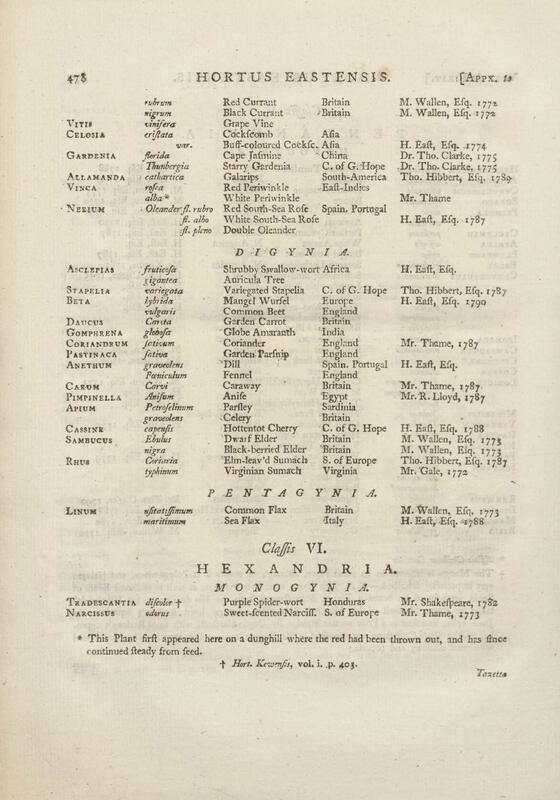 478 HORTUS EASTENSIS. [APPX. 
rubrum Red Currant Britain M. Wallen, Eſq. 1772
nigrum Black Currant Britain M. Wallen, Eſq. 1772
VITIS vinifera Grape Vine
CELOSIA criſtata Cockſcomb Aſia
var. Buff-coloured Cockſc. Aſia H. Eaſt, Eſq. 1774
GARDENIA florida Cape Jaſmine China Dr. Tho. Clarke, 1775
Thunbergia Starry Gardenia C. of G. Hope Dr. Tho. Clarke, 1775
ALLAMANDA cathartica Galarips South-America Tho. Hibbert, Eſq. 1789
VINCA roſea Red Periwinkle Eaſt-Indies
alba * White Periwinkle Mr. Thame
NERIUM Oleander fl. rubro Red South-Sea Roſe Spain. Portugal
fl. albo White South-Sea Roſe H. Eaſt, Eſq. 1787
fl. pleno Double Oleander
DIGYNIA.
ASCLEPIAS fruticoſa Shrubby Swallow-wort Africa H. Eaſt, Eſq.
gigantea Auricula Tree
STAPELIA variegata Variegated Stapelia C. of G. Hope Tho. Hibbert, Eſq. 1787
BETA hybrida Mangel Wurſel Europe H. Eaſt, Eſq. 1790
vulgaris Common Beet England
DAUCUS Carota Garden Carrot Britain
GOMPHRENA globoſa Globe Amaranth India
CORIANDRUM ſativum Coriander England Mr. Thame, 1787
PASTINACA ſativa Garden Parſnip England
ANETHUM graveolens Dill Spain. Portugal H. Eaſt, Eſq.
Fœniculum Fennel England
CARUM Carvi Caraway Britain Mr. Thame, 1787
PIMPINELLA Aniſum Aniſe Egypt Mr. R. Lloyd, 1787
APIUM Petroſelinum Parſley Sardinia
graveolens Celery Britain
CASSINE capenſis Hottentot Cherry C. of G. Hope H. Eaſt, Eſq. 1788
SAMBUCUS Ebulus Dwarf Elder Britain M. Wallen, Eſq. 1773
nigra Black-berried Elder Britain M. Wallen, Eſq. 1773
RHUS Coriaria Elm-leav'd Sumach S. of Europe Tho. Hibbert, Eſq. 1787
typhinum Virginian Sumach Virginia Mr. Gale, 1772
PENTAGYNIA.
LINUM uſitatiſſimum Common Flax Britain M. Wallen, Eſq. 1773
maritimum Sea Flax Italy H. Eaſt, Eſq. 1788
Claſſis VI.
HEXANDRIA.
MONOGYNIA.
TRADESCANTIA diſcolor † Purple Spider-wort Honduras Mr. Shakeſpeare, 1782
NARCISSUS odorus Sweet-ſcented Narciſſ. S. of Europe Mr. Thame, 1773
* This Plant firſt appeared here on a dunghill where the red had been thrown out, and has ſince
continued ſteady from ſeed.
† Hort. Kewenſis, vol. i. p. 403.
Tazetta